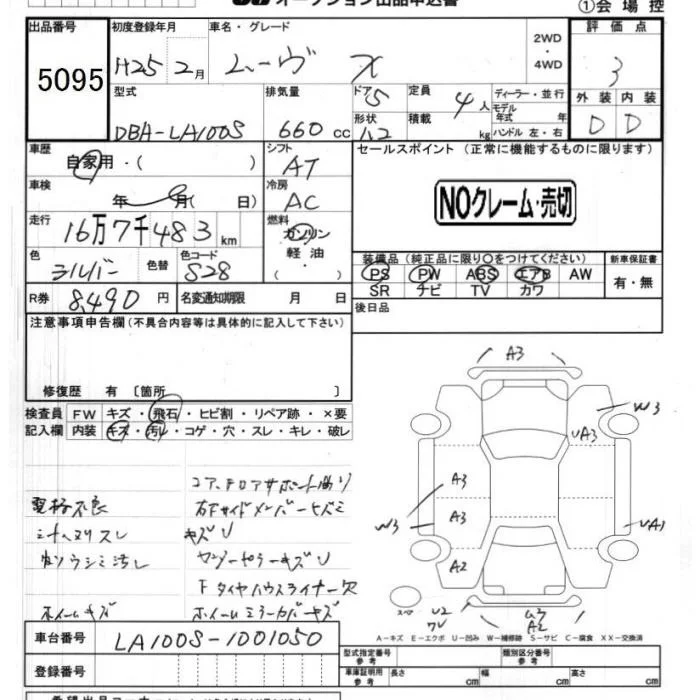 ①会場控
出品番号 初度登録年月 車名・グレード 2WD・4WD 評価点
5095 H25 2月 ムーヴ X 3
型式 排気量 ドア 5 定員 4人 ディーラー・並行 外装 内装
DBA-LA100S 660cc 形状 積載 kg モデル年式 年 ハンドル 左・右 D D
車歴 シフト セールスポイント (正常に機能するものに限ります)
自家用・( ) AT
車検 冷房 NOクレーム・売切
年 月( 日) AC
走行 燃料
16万7千483km ガソリン・軽油・( )
色 色替 色コード 装備品 (純正品に限り○をつけてください) 新車保証書
シルバー S28 PS PW ABS エアB AW 有・無
SR ナビ TV カワ
R券 8,490円 名変通知期限 月 日 後日品
注意事項申告欄(不具合内容等は具体的に記入して下さい)
修復歴 有 〔箇所 〕
検査員 FW キズ・飛石・ヒビ割・リペア跡・×要
記入欄 内装 キズ・汚レ・コゲ・穴・スレ・キレ・破レ
コア、Fロアサポート曲り
電格不良 右Fサイドメンバーヒズミ
キズU
Fタイヤハウスライナー欠
ホイールキズ ホイールミラーカバーキズ
A3
W3
UA3
A3
A3
W3
UA3
A2
スペア
A2
A-キズ E-エクボ U-凹み W-補修跡 S-サビ C-腐食 XX-交換済
車台番号 LA100S-1001050
型式指定番号 参考 類別区分番号 参考
登録番号 車庫証明用 参考 長さ cm 幅 cm 高さ cm